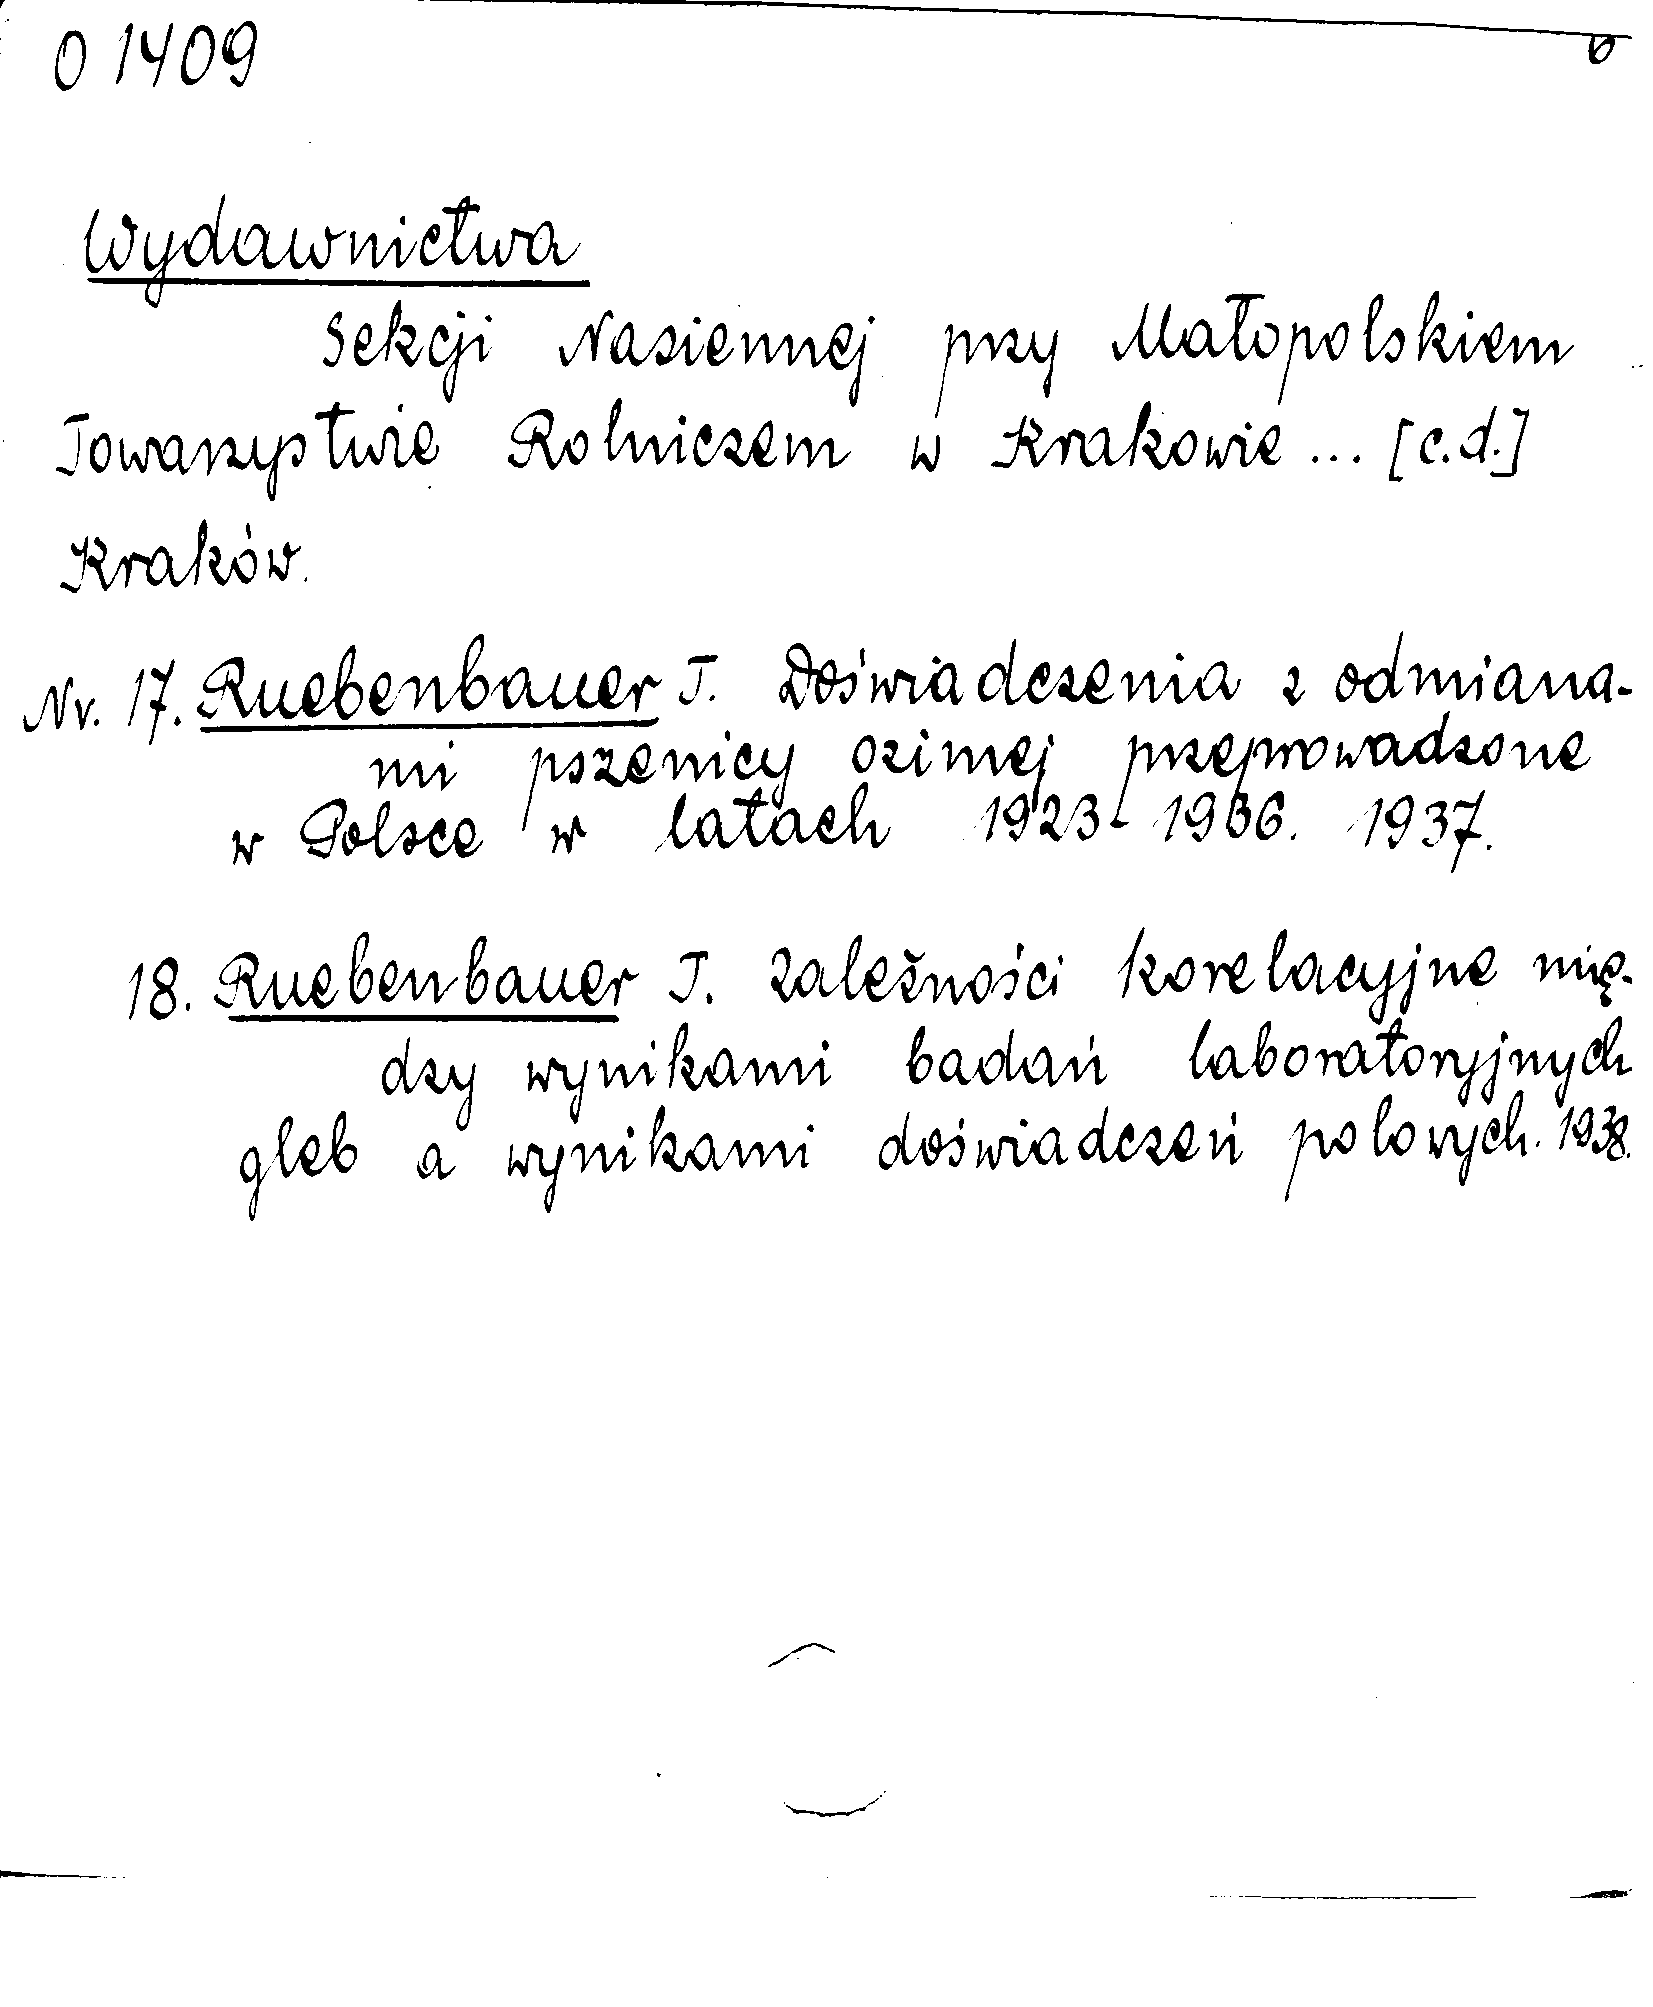 O 1409 6
Wydawnictwa
Sekcji Nasiennej przy Małopolskiem
Towarzystwie Rolniczem w Krakowie ... [c.d.]
Kraków.
Nr. 17. Ruebenbauer T. Doświadczenia z odmiana-
mi pszenicy ozimej przeprowadzone
w Polsce w latach 1923-1936. 1937.
18. Ruebenbauer T. Zależności korelacyjne mię-
dzy wynikami badań laboratoryjnych
gleb a wynikami doświadczeń polowych. 1938.